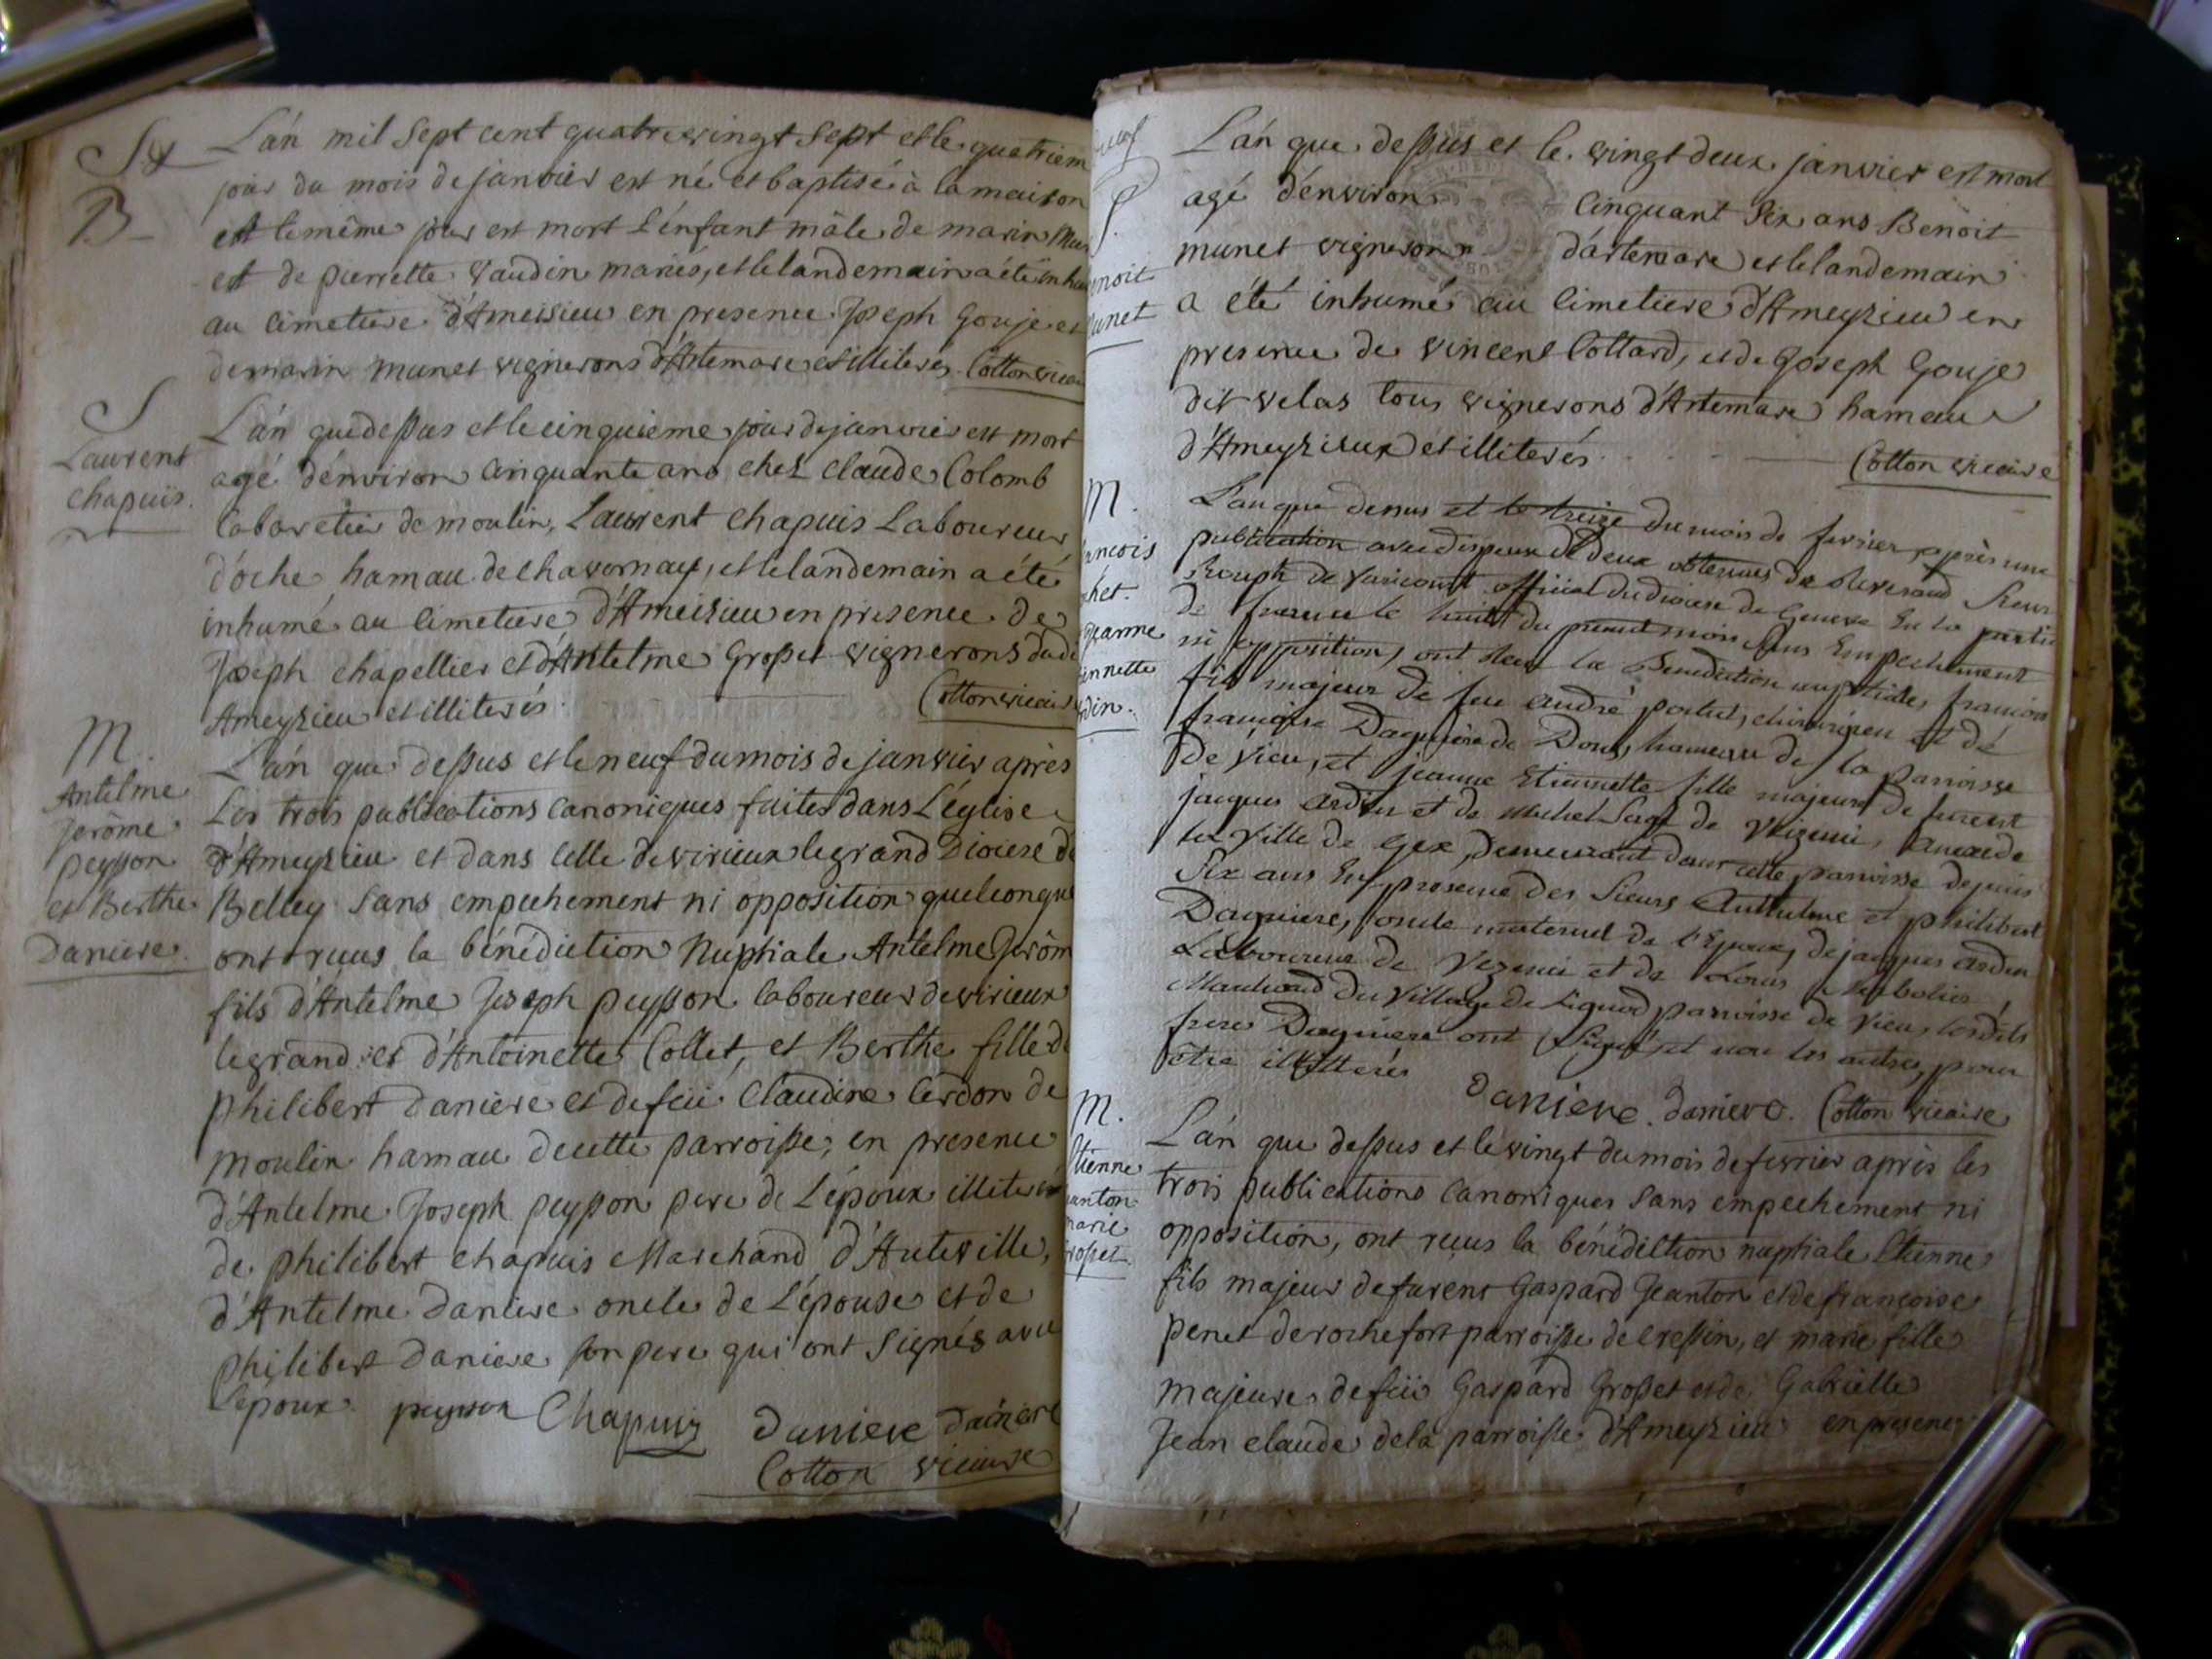 S et
B
L'an mil Sept cent quatrevingt Sept et le quatriem
jour du mois de janvier est né et baptisé à la maison
et le même jour est mort L'enfant mâle de marin
et de pierrette Vaudin mariés, et le landemain a été inhu
au cimetiere d'Ameisieu en presence Joseph Gouje et
de marin munet vignerons d'Artemare et illiterés Cotton vicai
S
Laurent
chapuis.
L'an que dessus et le cinquieme jour de janvier est mort
agé d'environ cinquante ans chez Claude Colomb
Cabaretier de moulin, Laurent chapuis Laboureur
d'oche hamau de chavornay, et le landemain a été
inhumé au Cimetiere d'Ameisieu en presence de
Joseph chapellier et d'Antelme Grosset vignerons dud
Ameyzieu et illiterés. Cotton vicair
M.
Antelme
Jerôme
peysson
et Berthe
Daniere.
L'an que dessus et le neuf du mois de janvier après
Les trois publications canoniques faites dans L'église
d'Ameyzieu et dans celle de virieux le grand Diocese de
Belley sans empechement ni opposition quelconque
ont reçus la bénédiction Nuptiale Antelme Jerôm
fils d'Antelme Joseph peysson laboureur de virieux
le grand et d'Antoinette Collet, et Berthe fille de
philibert daniere et de feüe Claudine Cerdon de
moulin hamau de cette parroisse, en presence
d'Antelme Joseph peysson pere de L'époux illiteré
de philibert chapuis Marchand d'Auteville,
d'Antelme daniere oncle de L'épouse et de
philibert daniere son pere qui ont Signés avec
l'époux. peysson Chapuis Daniere daniere
Cotton vicaire
S.
enoit
unet
L'an que dessus et le vingt deux janvier est mort
agé d'environ Cinquant Six ans Benoit
munet vigneron d'artemare et le landemain
a été inhumé au Cimetiere d'Ameyzieu en
presence de vincent Collard, et de Joseph Gouje
dit velas tous vignerons d'Artemare hameau
d'Ameyzieux et illiterés. Cotton vicaire
M.
ancois
chet.
jeanne
iennette
rdin.
L'an que dessus et le treize du mois de fevrier, après une
publication avec dispense de deux obtenues de Reverend Sieur
Joseph de Varicourt official du diocese de Geneve En la partie
de france le huit du present mois Sans Empechement
ni opposition, ont reçu la Benediction nuptiale, francois
fils majeur de feu andré pochet, chirurgien et de
françoise Dagniere de Don, hameau de la paroisse
De Vieu, et jeanne Etiennette fille majeure de furent
jacques ardin et de Michel de Vezenie, annexe de
la Ville de Gex, demeurant dans cette paroisse depuis
Six ans En presence des Sieurs Anthelme et philibert
Dagniere, oncle maternel de l'Epoux, de jacques ardin
Laboureur de Vezenie et de Louis
Marchand du Village de Lignod paroisse de Vieu, lesdits
freres Dagniere ont Signé et non les autres, pour
être illitterés
Daniere. daniere. Cotton vicaire
M.
Etienne
eanton
marie
rosset.
L'an que dessus et le vingt du mois de fevrier après les
trois publications Canoniques sans empechement ni
opposition, ont reçus la bénédiction nuptiale Etienne
fils majeur de furent Gaspard Jeanton et de francoise
penet de rochefort parroisse de Cressin, et marie fille
majeure de feüe Gaspard Grosset et de Gabrielle
Jean claude de la parroisse d'Ameyzieu en presence